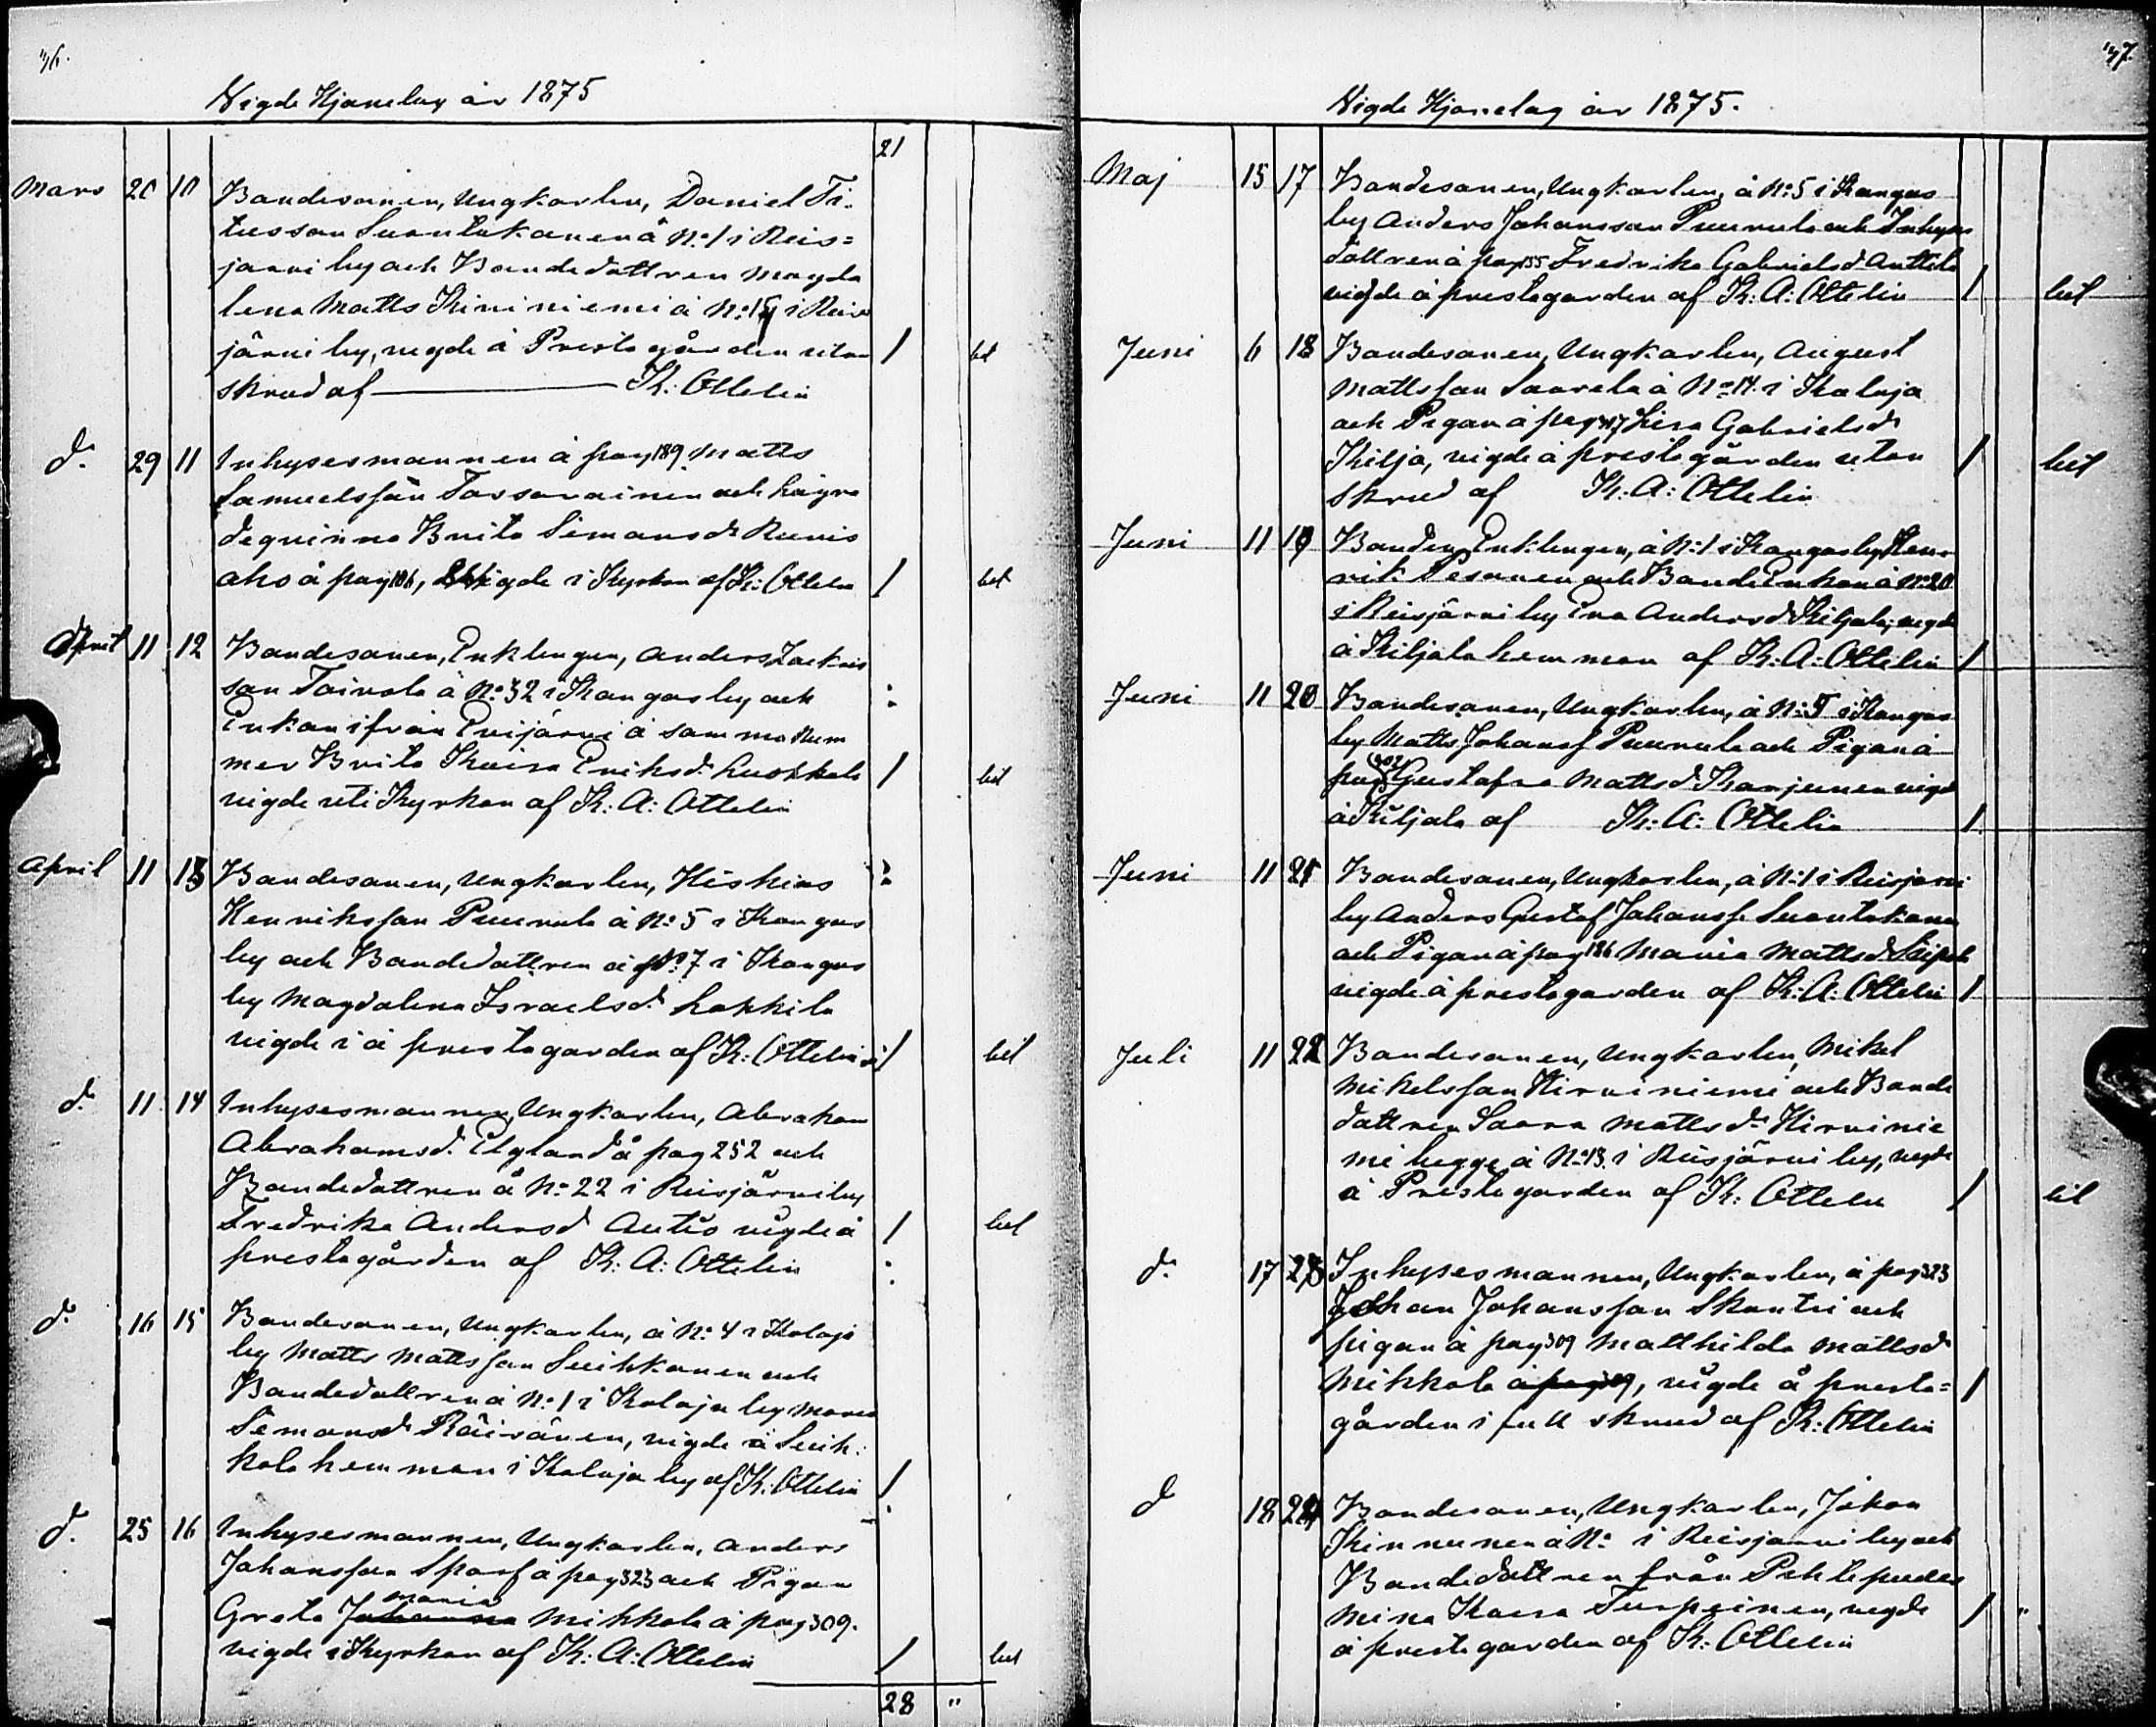 36.
Vigde Hjonelag år 1875
21
Mars 20 10 Bondesonen, Ungkarlen, Daniel Ti-
tusson Suontakanen å No 1 i Reis=
järvi by och Bondedottren Magda
lena Matts Kiviniemi å No 15 i Reis
järvi by, vigde å Prestegården utan / bet
skrud af K: Ottelin
do 29 11 Inhysesmannen å pag 189 Matts
Samuelsson Tassarainen och lägra
de qvinna Brita Simonsdr Runis
aho å pag 186, vigde i Kyrkan af K: Ottelin / bet
April 11 12 Bondesonen, Enklingen, Anders Zackris
son Toivola å No 32 i Kangas by och
Enkan ifrån Evijärvi å samma Num
mer Brita Kaisa Eriksdr Luokkala / bet
vigde uti Kyrkan af K: A: Ottelin
April 11 13 Bondesonen, Ungkarlen, Hiskias
Henriksson Puurula å No 5 i Kangas
by och Bondedottren å No 7 i Kangas
by Magdalena Israelsdr Lokkila
vigde i å prestegarden af K: Ottelin / bet
do 11 14 Inhysesmannen, Ungkarlen, Abraham
Abrahamsd. Elgland å pag 252 och
Bondedottren å No 22 i Reisjärvi by
Fredrika Andersd Autio vigde å / bet
prestegården af K: A: Ottelin
do 16 15 Bondesonen, Ungkarlen, å No 4 i Kalaja
by Matts Mattsson Suihkonen och
Bondedottren å No 1 i Kalaja by Maria
Simonsd Räisänen, vigde å Suih-
kola hemman i Kalaja by af K: Ottelin /
do 25 16 Inhysesmannen, Ungkarlen, Anders
Johansson Sparf å pag 323 och Pigan
Greta Johanna Maria Mikkola å pag 309.
vigde i Kyrkan af K: A: Ottelin / bet
28 "
37.
Vigde Hjonelag år 1875.
Maj 15 17 Bondesonen, Ungkarlen, å No 5 i Kangas
by Anders Johansson Puurula och Inhyses
dottren å pag 155 Fredrika Gabrielsd Anttila
vigde å prestegarden af K: A: Ottelin / bet
Juni 6 18 Bondesonen, Ungkarlen, August
Mattsson Saarela å No 14 i Kalaja
och Pigan å pag 317 Lisa Gabrielsdr
Kilja, vigde å prestegården utan / bet
skrud af K: A: Ottelin
Juni 11 19 Bonden, Enklingen, å No 1 i Kangas by Hen-
rik Pesonen och Bonde Enkan å No 20
i Reisjärvi by Eva Andersd Kiljala, vigde
å Kiljala hemman af K: A: Ottelin /
Juni 11 20 Bondesonen, Ungkarlen, å No 5 i Kangas
by Matts Johanss Puurula och Pigan å
pag Gustafva Mattsd Karjunen vigde
å Kiljala af K: A: Ottelin /
Juni 11 21 Bondesonen, Ungkarlen, å No 1 i Reisjärvi
by Anders Gustaf Johanss. Suontakanen
och Pigan å pag 186 Maria Mattsd Seipel
vigde å prestegarden af K: A: Ottelin /
Juli 11 22 Bondesonen, Ungkarlen, Mikel
Mikelsson Hirviniemi och Bonde
dottren Saara Mattsdr Hirvinie
mi begge å No 13 i Reisjärvi by, vigde
å Prestegarden af K: Ottelin / bet
do 17 23 Inhysesmannen, Ungkarlen, å pag 323
Johan Johansson Skantsi och
pigan å pag 309 Matthilda Mattsdr
Mikkola å pag 309, vigde å preste= /
gården i full skrud af K: Ottelin
do 18 24 Bondesonen, Ungkarlen, Johan
Kinnunen å No i Reisjarvi by och
Bondedottren från Pihtipudas
Mina Kaisa Turpeinen, vigde / "
å prestegarden af K: Ottelin